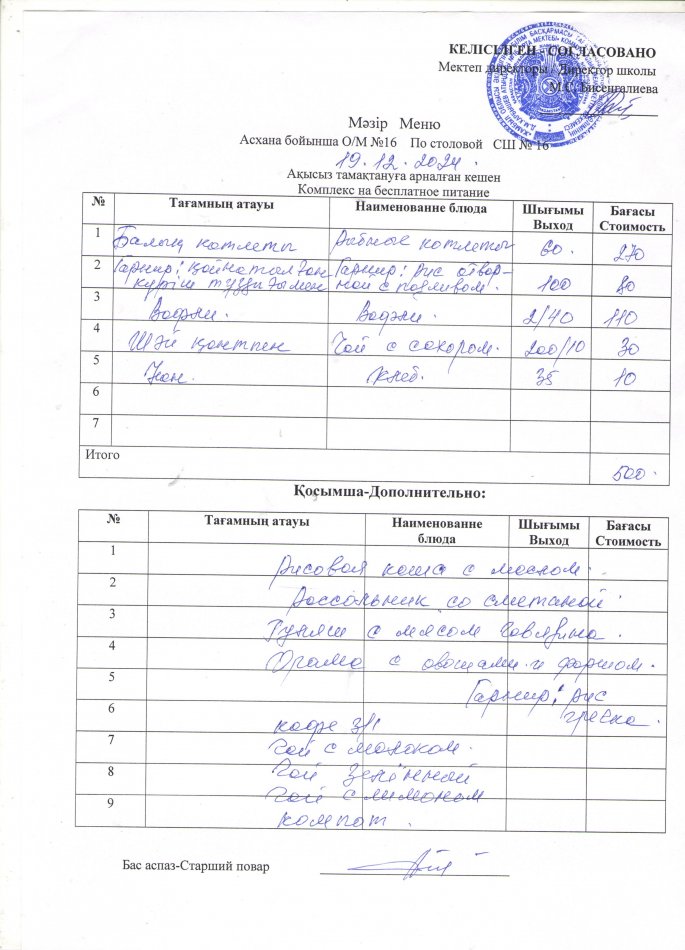 КЕЛІСІЛГЕН - СОГЛАСОВАНО
Мектеп директоры Директор школы
М.С. Бисенгалиева
Мәзір Меню
Асхана бойынша О/М №16 По столовой СШ № 16
19.12.2024.
Ақысыз тамақтануға арналған кешен
Комплекс на бесплатное питание
№ Тағамның атауы Наименованне блюда Шығымы Выход Бағасы Стоимость
1 Балық котлеты Рыбные котлеты 60. 270
2 Гарнир: қайнатылған күріш тұздығымен Гарнир: рис отвар-ной с подливом. 100 80
3 Вафли. Вафли. 2/40 110
4 Шәй қантпен Чай с сахаром. 200/10 30
5 Нан. Хлеб. 35 10
6
7
Итого 500.
Қосымша-Дополнительно:
№ Тағамның атауы Наименованне блюда Шығымы Выход Бағасы Стоимость
1 Рисовая каша с маслом.
2 Рассольник со сметаной
3 Гуляш с мясом говядина.
4 Орама с овощами и фаршом.
5 Гарнир: рис
6 гречка.
кофе 3/1
7 Чай с молоком.
8 Чай зелённый
Чай с лимоном
9 компот.
Бас аспаз-Старший повар